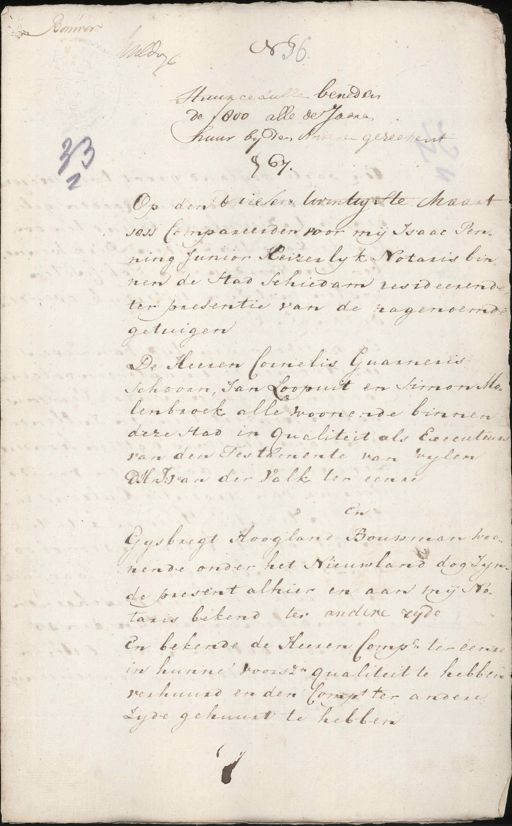 N 56.
Huurcedulle beneden
de 1800 alle de Jaaren
huur by den anderen gereekent
§ 67.
33
2
Op den twintigste Maart
Compareerden voor mij Isaac Pen-
ning Junior Keizerlyk Notaris bin-
nen de Stad Schiedam resideerende
ter presentie van de nagenoemde
getuigen
De Heeren Cornelis Guarneris
Schoorn, Jan Loopuit en Simon Mo-
lenbroek alle woonende binnen
deze Stad in qualiteit als Executeurs
van den Testamente van wylen
van der Valk ter eenre
En
Gysbregt Hoogland Bouwman woo-
nende onder het Nieuwland dog Zyn-
de present alhier en aan mij No-
taris bekend ter andere zyde
En bekende de Heeren Comp.n ter eenre
in hunne voorsz. qualiteit te hebben
verhuurd en den Comp.t ter andere
Zyde gehuurt te hebben